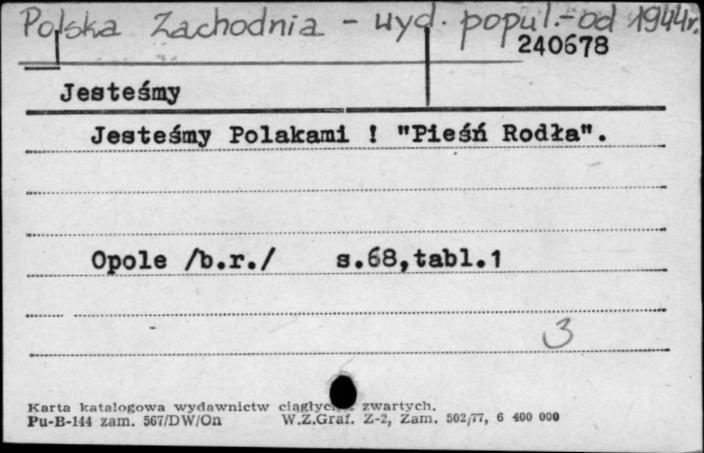 Polska Zachodnia - wyd. popul. - od 1944r.
240678
Jesteśmy
Jesteśmy Polakami ! "Pieśń Rodła".
Opole /b.r./ s.68,tabl.1
3
Karta katalogowa wydawnictw ciągłych zwartych.
Pu-B-144 zam. 567/DW/On W.Z.Graf. Z-2, Zam. 502/77, 6 400 000